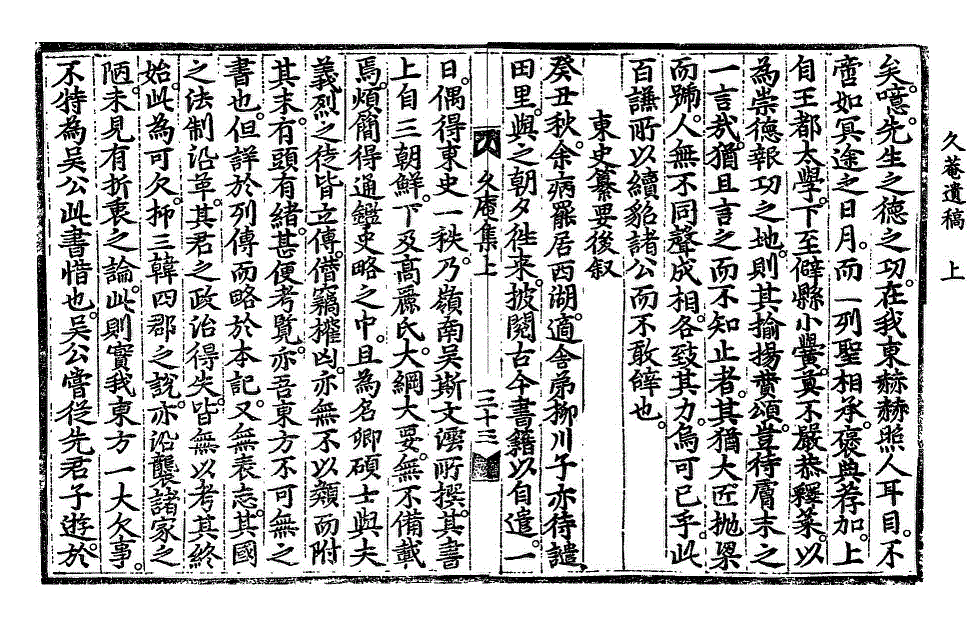 久菴遺稿　上
矣。噫。先生之德之功。在我東赫赫照人耳目。不
啻如冥途之日月。而一列聖相承。褒典荐加。上
自王都太學。下至僻縣小黌。莫不嚴恭釋菜。以
為崇德報功之地。則其揄揚賛頌。豈待膚末之
一言哉。猶且言之而不知止者。其猶大匠抛梁
而號。人無不同聲成相。各致其力。烏可已乎。此
百謙所以續貂諸公而不敢辭也。
東史纂要後叙
癸丑秋。余病罷居西湖。適舍弟柳川子亦待譴
田里。與之朝夕徃來。披閱古今書籍以自遣。一
久庵集上
三十三
日。偶得東史一秩。乃嶺南吳斯文澐所撰。其書
上自三朝鮮。下及高麗氏。大綱大要。無不備載
焉。頗簡得通鑑史略之中。且為名卿碩士與夫
義烈之徒皆立傳。僭竊權凶。亦無不以類而附
其末。有頭有緒。甚便考覽。亦吾東方不可無之
書也。但詳於列傳而略於本記。又無表志。其國
之法制沿革。其君之政治得失。皆無以考其終
始。此為可欠。抑三韓四郡之說。亦沿襲諸家之
陋。未見有折衷之論。此則實我東方一大欠事。
不特為吳公此書惜也。吳公嘗從先君子遊於